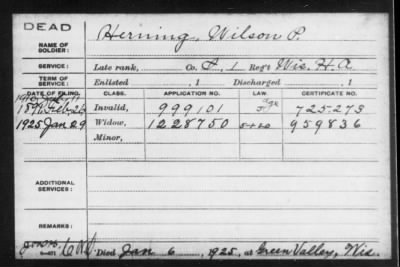 DEAD
NAME OF SOLDIER: Herning, Wilson P.
SERVICE: Late rank, Co. F, 1 Reg't Wis. H. A.
TERM OF SERVICE: Enlisted , 1 Discharged , 1
DATE OF FILING. CLASS. APPLICATION NO. LAW. CERTIFICATE NO.
Invalid, 999101 725.273
1925 Jan 29 Widow, 1228750 959836
Minor,
ADDITIONAL SERVICES:
REMARKS:
Died Jan 6, 1925, at Green Valley, Wis.